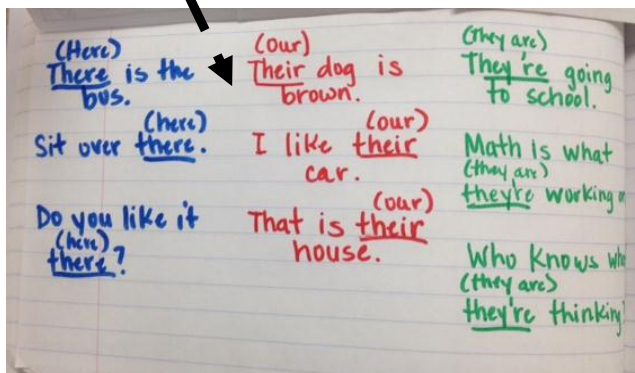 (Here)
There is the
bus.
(here)
Sit over there.
Do you like it
(here)
there?
(our)
Their dog is
brown.
(our)
I like their
car.
(our)
That is their
house.
(they are)
They're going
to school.
Math is what
(they are)
they're working
Who knows
(they are)
they're thinking